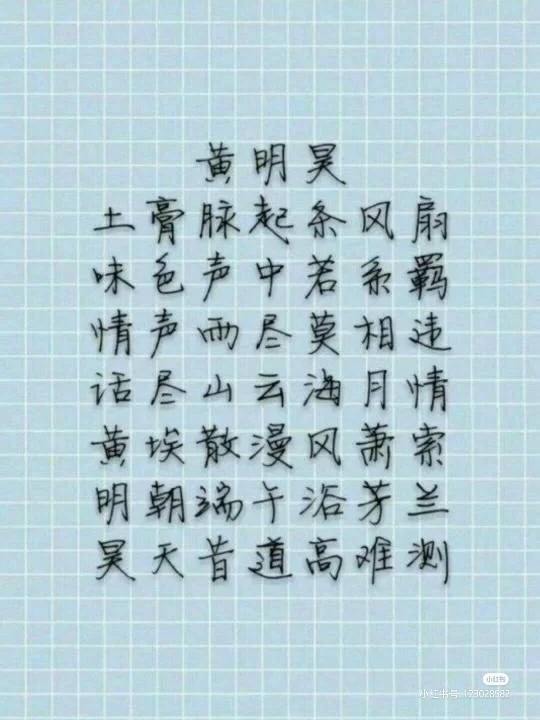 黄明昊
土膏脉起条风扇
味色声中若系羁
情声两尽莫相违
话尽山云海月情
黄埃散漫风萧索
明朝端午浴芳兰
昊天昔道高难测
小红书
小红书号: 173028582